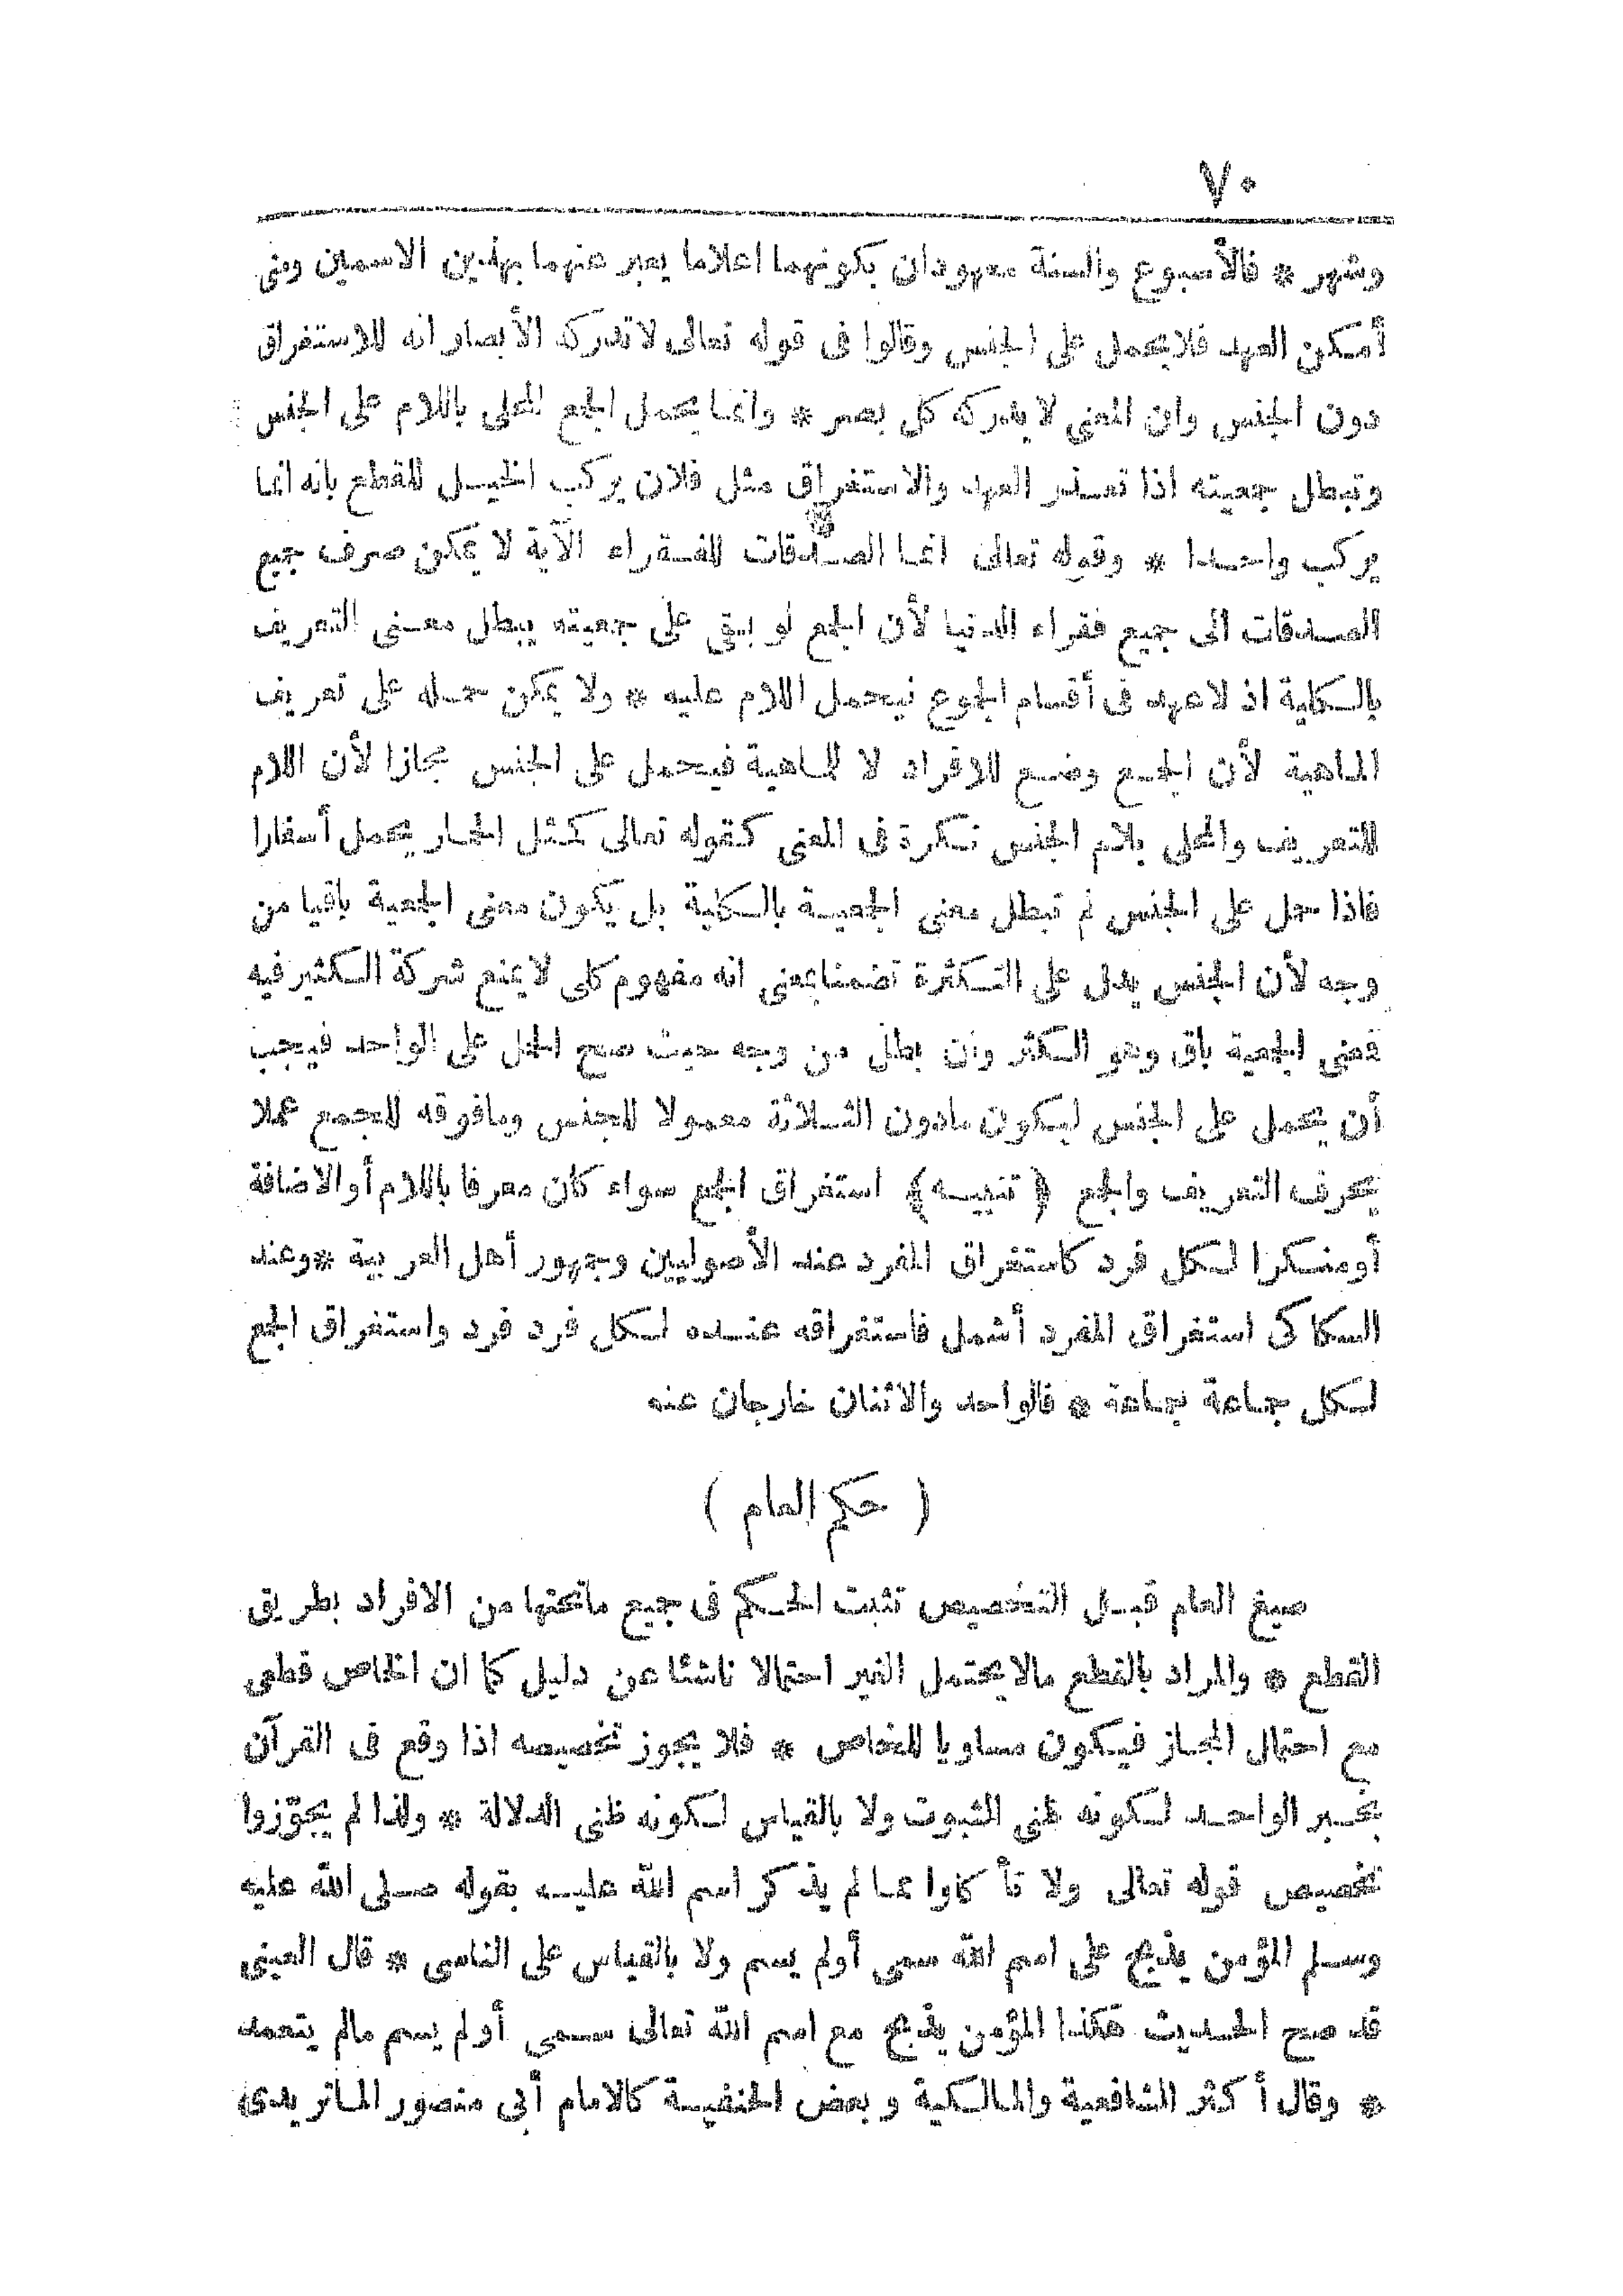 ٧٠
وشهر * فالأسبوع والسنة معهودان بكونهما اعلاما يعبر عنهما بهذين الاسمين ومتى
أمكن العهد فلا يحمل على الجنس وقالوا فى قوله تعالى لا تدركه الأبصار انه للاستغراق
دون الجنس وان المعنى لا يدركه كل بصر * وانما يحمل الجمع المحلى باللام على الجنس
وتبطل جمعيته اذا تعذر العهد والاستغراق مثل فلان يركب الخيل للقطع بانه انما
يركب واحدا * وقوله تعالى انما الصدقات للفقراء الآية لا يمكن صرف جميع
الصدقات الى جميع فقراء الدنيا لأن الجمع لو ابقى على جمعيته يبطل معنى التعريف
بالكلية اذ لا عهد فى أقسام الجموع فيحمل اللام عليه * ولا يمكن حمله على تعريف
الماهية لأن الجمع وضع للافراد لا للماهية فيحمل على الجنس مجازا لأن اللام
للتعريف والمحلى بلام الجنس نكرة فى المعنى كقوله تعالى كمثل الحمار يحمل أسفارا
فاذا حمل على الجنس لم تبطل معنى الجمعية بالكلية بل يكون معنى الجمعية باقيا من
وجه لأن الجنس يدل على التكثرة تضمنا بمعنى انه مفهوم كلى لا يمنع شركة الكثير فيه
فمعنى الجمعية باق وهو التكثر وان بطل من وجه حيث صح الحمل على الواحد فيجب
أن يحمل على الجنس ليكون مادون الثلاثة معمولا للجنس ومافوقه للجمع عملا
بحرف التعريف والجمع ﴿ تنبيه ﴾ استغراق الجمع سواء كان معرفا باللام أو الاضافة
أو منكرا لكل فرد كاستغراق المفرد عند الأصوليين وجمهور أهل العربية * وعند
السكاكى استغراق المفرد أشمل فاستغراقه عنده لكل فرد فرد واستغراق الجمع
لكل جماعة جماعة * فالواحد والاثنان خارجان عنه
( حكم العام )
صيغ العام قبل التخصيص تثبت الحكم فى جميع ماتحتها من الافراد بطريق
القطع * والمراد بالقطع مالا يحتمل الغير احتمالا ناشئا عن دليل كما ان الخاص قطعى
مع احتمال المجاز فيكون مساويا للخاص * فلا يجوز تخصيصه اذا وقع فى القرآن
بخبر الواحد لكونه ظنى الثبوت ولا بالقياس لكونه ظنى الدلالة * ولذا لم يجوّزوا
تخصيص قوله تعالى ولا تأكلوا مما لم يذكر اسم الله عليه بقوله صلى الله عليه
وسلم المؤمن يذبح على اسم الله سمى أولم يسم ولا بالقياس على الناسى * قال العينى
قد صح الحديث هكذا المؤمن يذبح مع اسم الله تعالى سمى أولم يسم مالم يتعمد
* وقال أكثر الشافعية والمالكية وبعض الحنفية كالامام أبى منصور الماتريدى